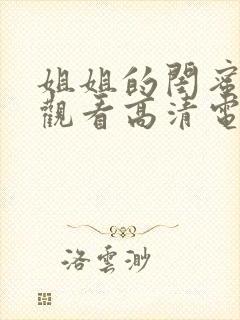 姐姐的閏蜜
觀看高清電
洛雲渺